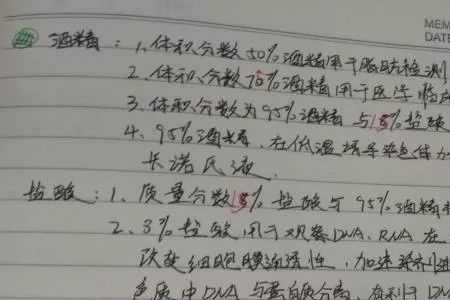 MEM
DATE
酒精：1、体积分数50%酒精用于脂肪检测
2、体积分数75%酒精用于医学临
3、体积分数为95%酒精与15%盐酸
4、95%酒精，在低温诱导染色体加
卡诺氏液.
盐酸：1、质量分数15%盐酸与95%酒精
2、8%盐酸用于观察DNA、RNA在
改变细胞膜通透性，加速染剂进
色质中DNA与蛋白质分离，有利于DN